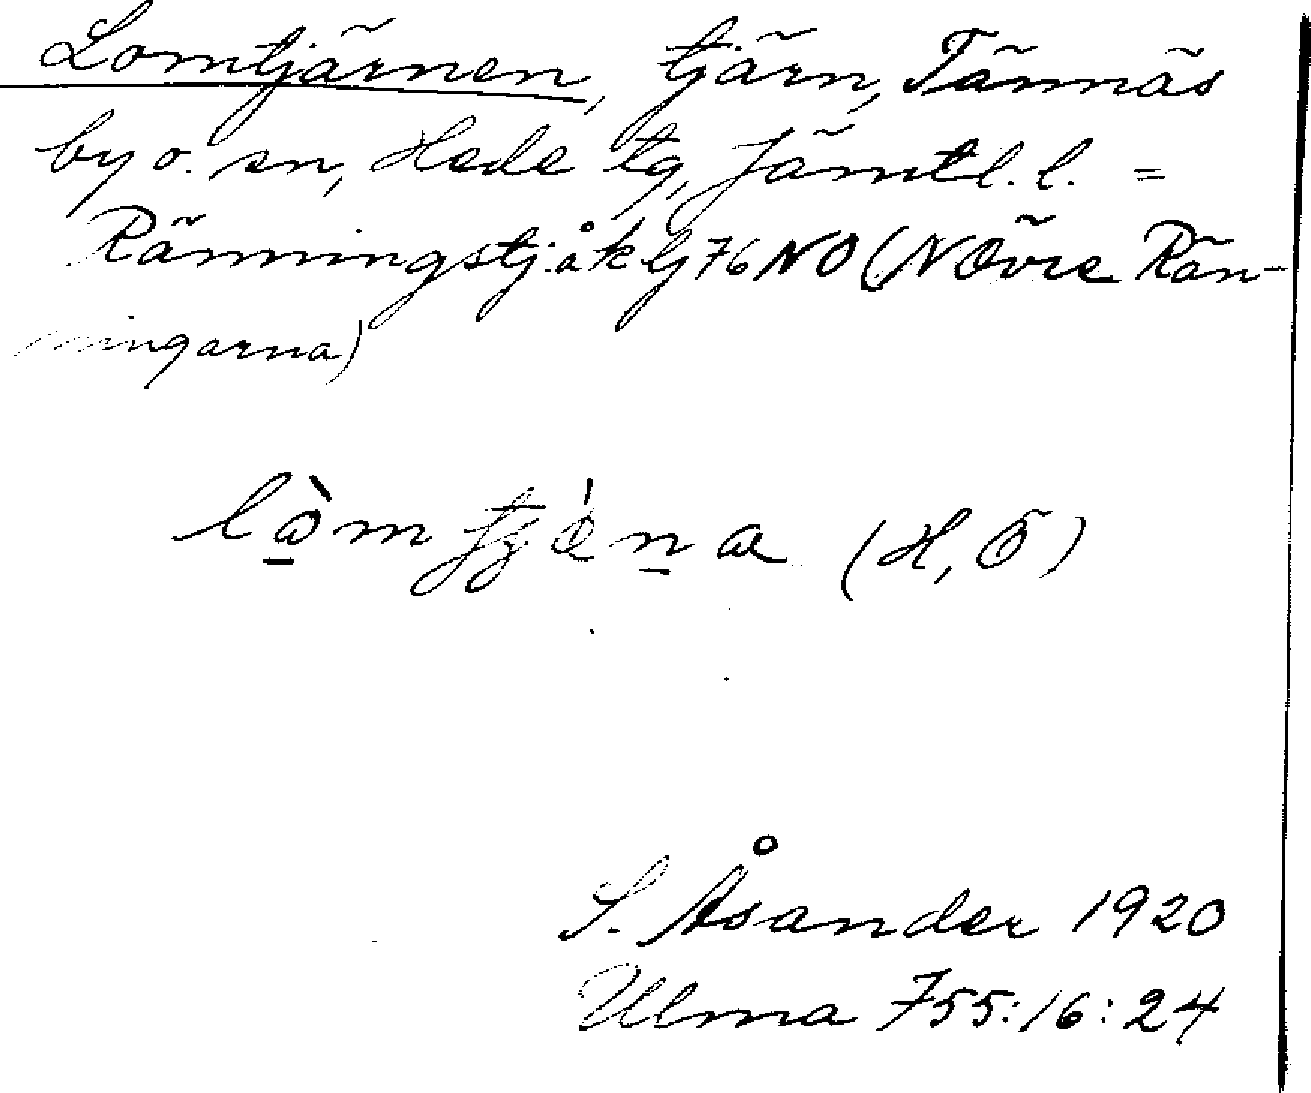 Lomtjärnen, tjärn, Tännäs
by o. sn, Hede tg, Jämtl. l. =
Ränningstj. å k bl 76 NO (N Övre Rän-
ningarna)
lòm tjéna (H, Ö)
S. Åsander 1920
Ulma 755:16:24